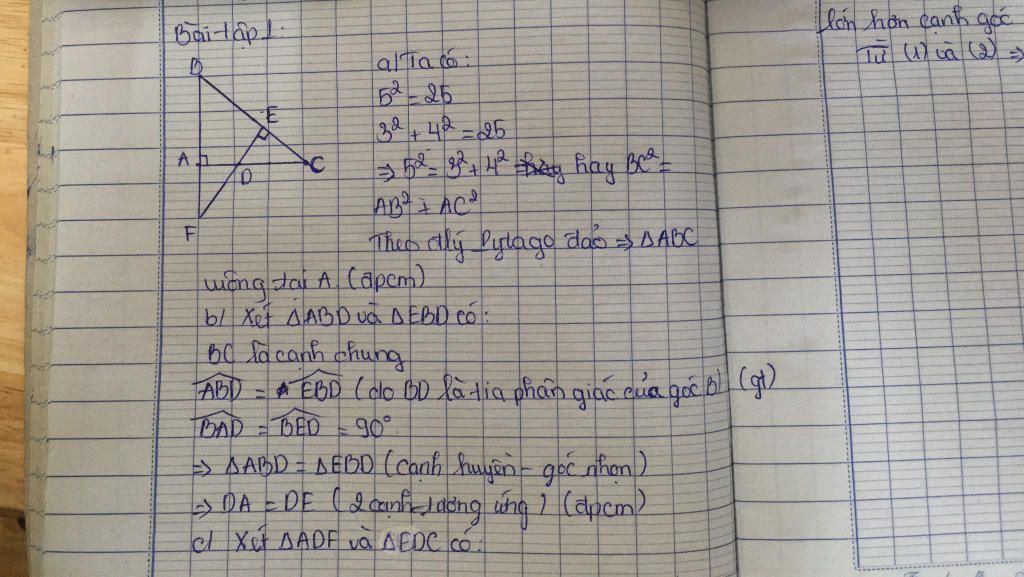 Bài tập 1:
B
E
A
D
C
F
a) Ta có:
5² = 25
3² + 4² = 25
⇒ 5² = 3² + 4² hay BC² =
AB² + AC²
Theo đlý Pytago đảo ⇒ ΔABC
vuông tại A (đpcm)
b) Xét ΔABD và ΔEBD có:
BC là cạnh chung
ABD = EBD (do BD là tia phân giác của góc B) (gt)
BAD = BED = 90°
⇒ ΔABD = ΔEBD (cạnh huyền - góc nhọn)
⇒ DA = DE (2 cạnh tương ứng) (đpcm)
c) Xét ΔADF và ΔEDC có:
lớn hơn cạnh góc
Từ (1) và (2) ⇒